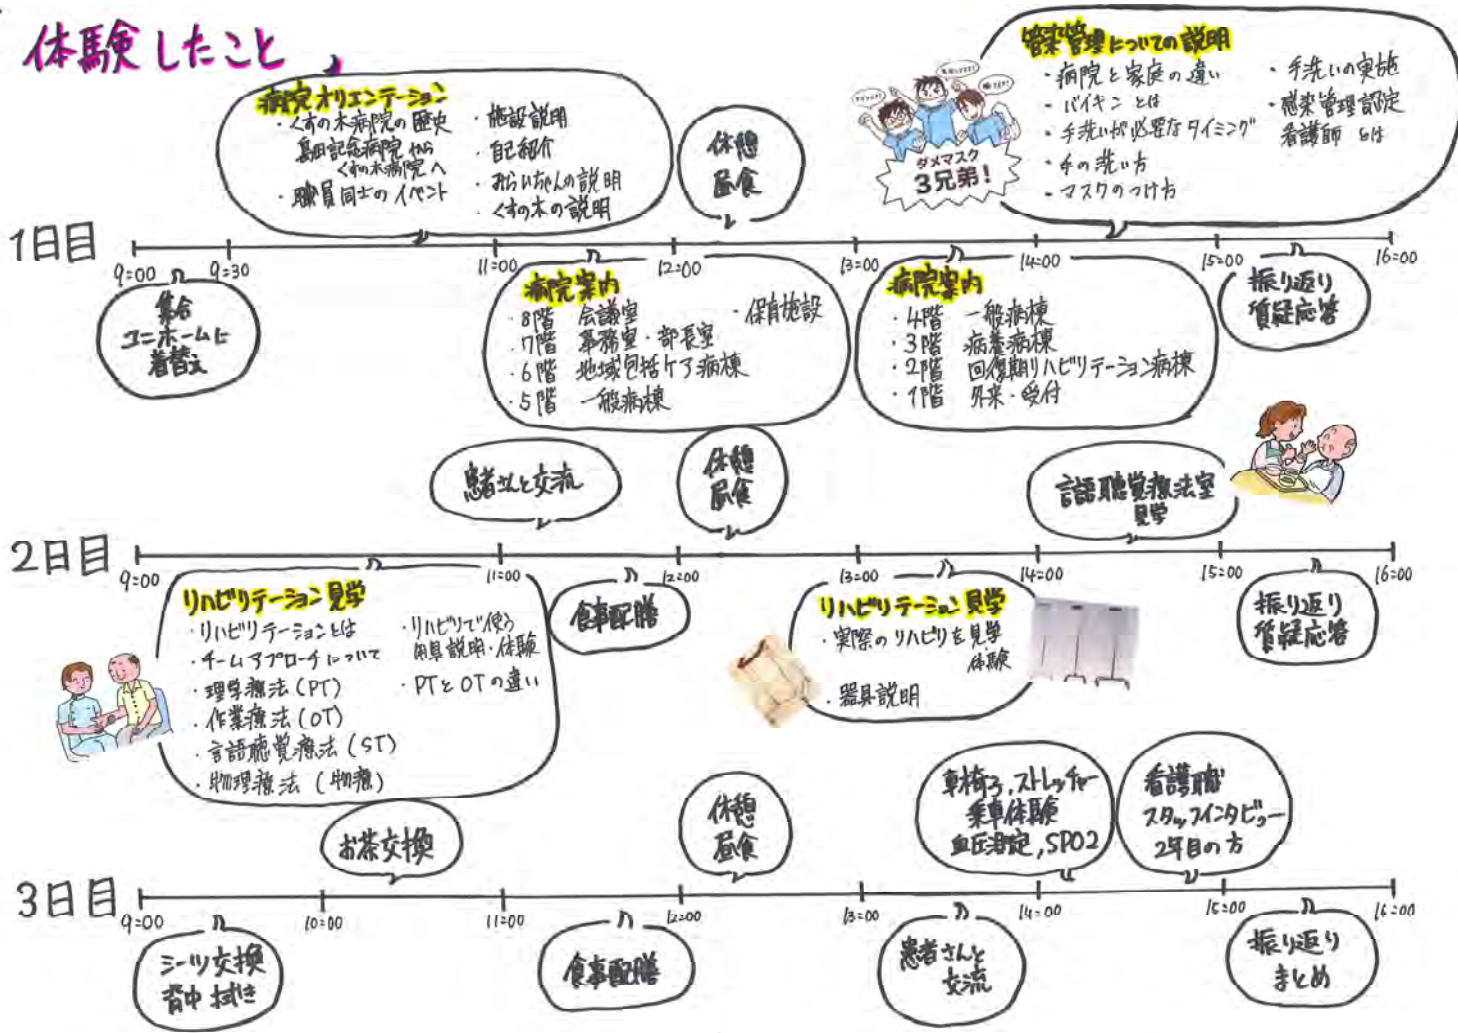 体験したこと
病院オリエンテーション
・くすの木病院の歴史
島田記念病院から
くすの木病院へ
・職員同士のイベント
・施設説明
・自己紹介
・みらいちゃんの説明
・くすの木の説明
休憩
昼食
ダメマスク
3兄弟!
管染管理についての説明
・病院と家庭の違い
・バイキンとは
・手洗いが必要なタイミング
・手の洗い方
・マスクのつけ方
・手洗いの実施
・感染管理認定
看護師とは
1日目
9:00
9:30
11:00
12:00
13:00
14:00
15:00
16:00
集合
ユニホームに
着替え
病院案内
・8階 会議室
・7階 事務室・部長室
・6階 地域包括ケア病棟
・5階 一般病棟
・保育施設
病院案内
・4階 一般病棟
・3階 病養病棟
・2階 回復期リハビリテーション病棟
・1階 外来・受付
振り返り
質疑応答
患者さんと交流
休憩
昼食
言語聴覚療法室
見学
2日目
9:00
11:00
12:00
13:00
14:00
15:00
16:00
リハビリテーション見学
・リハビリテーションとは
・チームアプローチについて
・理学療法(PT)
・作業療法(OT)
・言語聴覚療法(ST)
・物理療法(物療)
・リハビリで使う
用具説明・体験
・PTとOTの違い
食事配膳
リハビリテーション見学
・実際のリハビリを見学
体験
・器具説明
振り返り
質疑応答
お茶交換
休憩
昼食
車椅子,ストレッチャー
乗車体験
血圧測定,SPO2
看護職
スタッフインタビュー
2年目の方
3日目
9:00
10:00
11:00
12:00
13:00
14:00
15:00
16:00
シーツ交換
背中拭き
食事配膳
患者さんと
交流
振り返り
まとめ